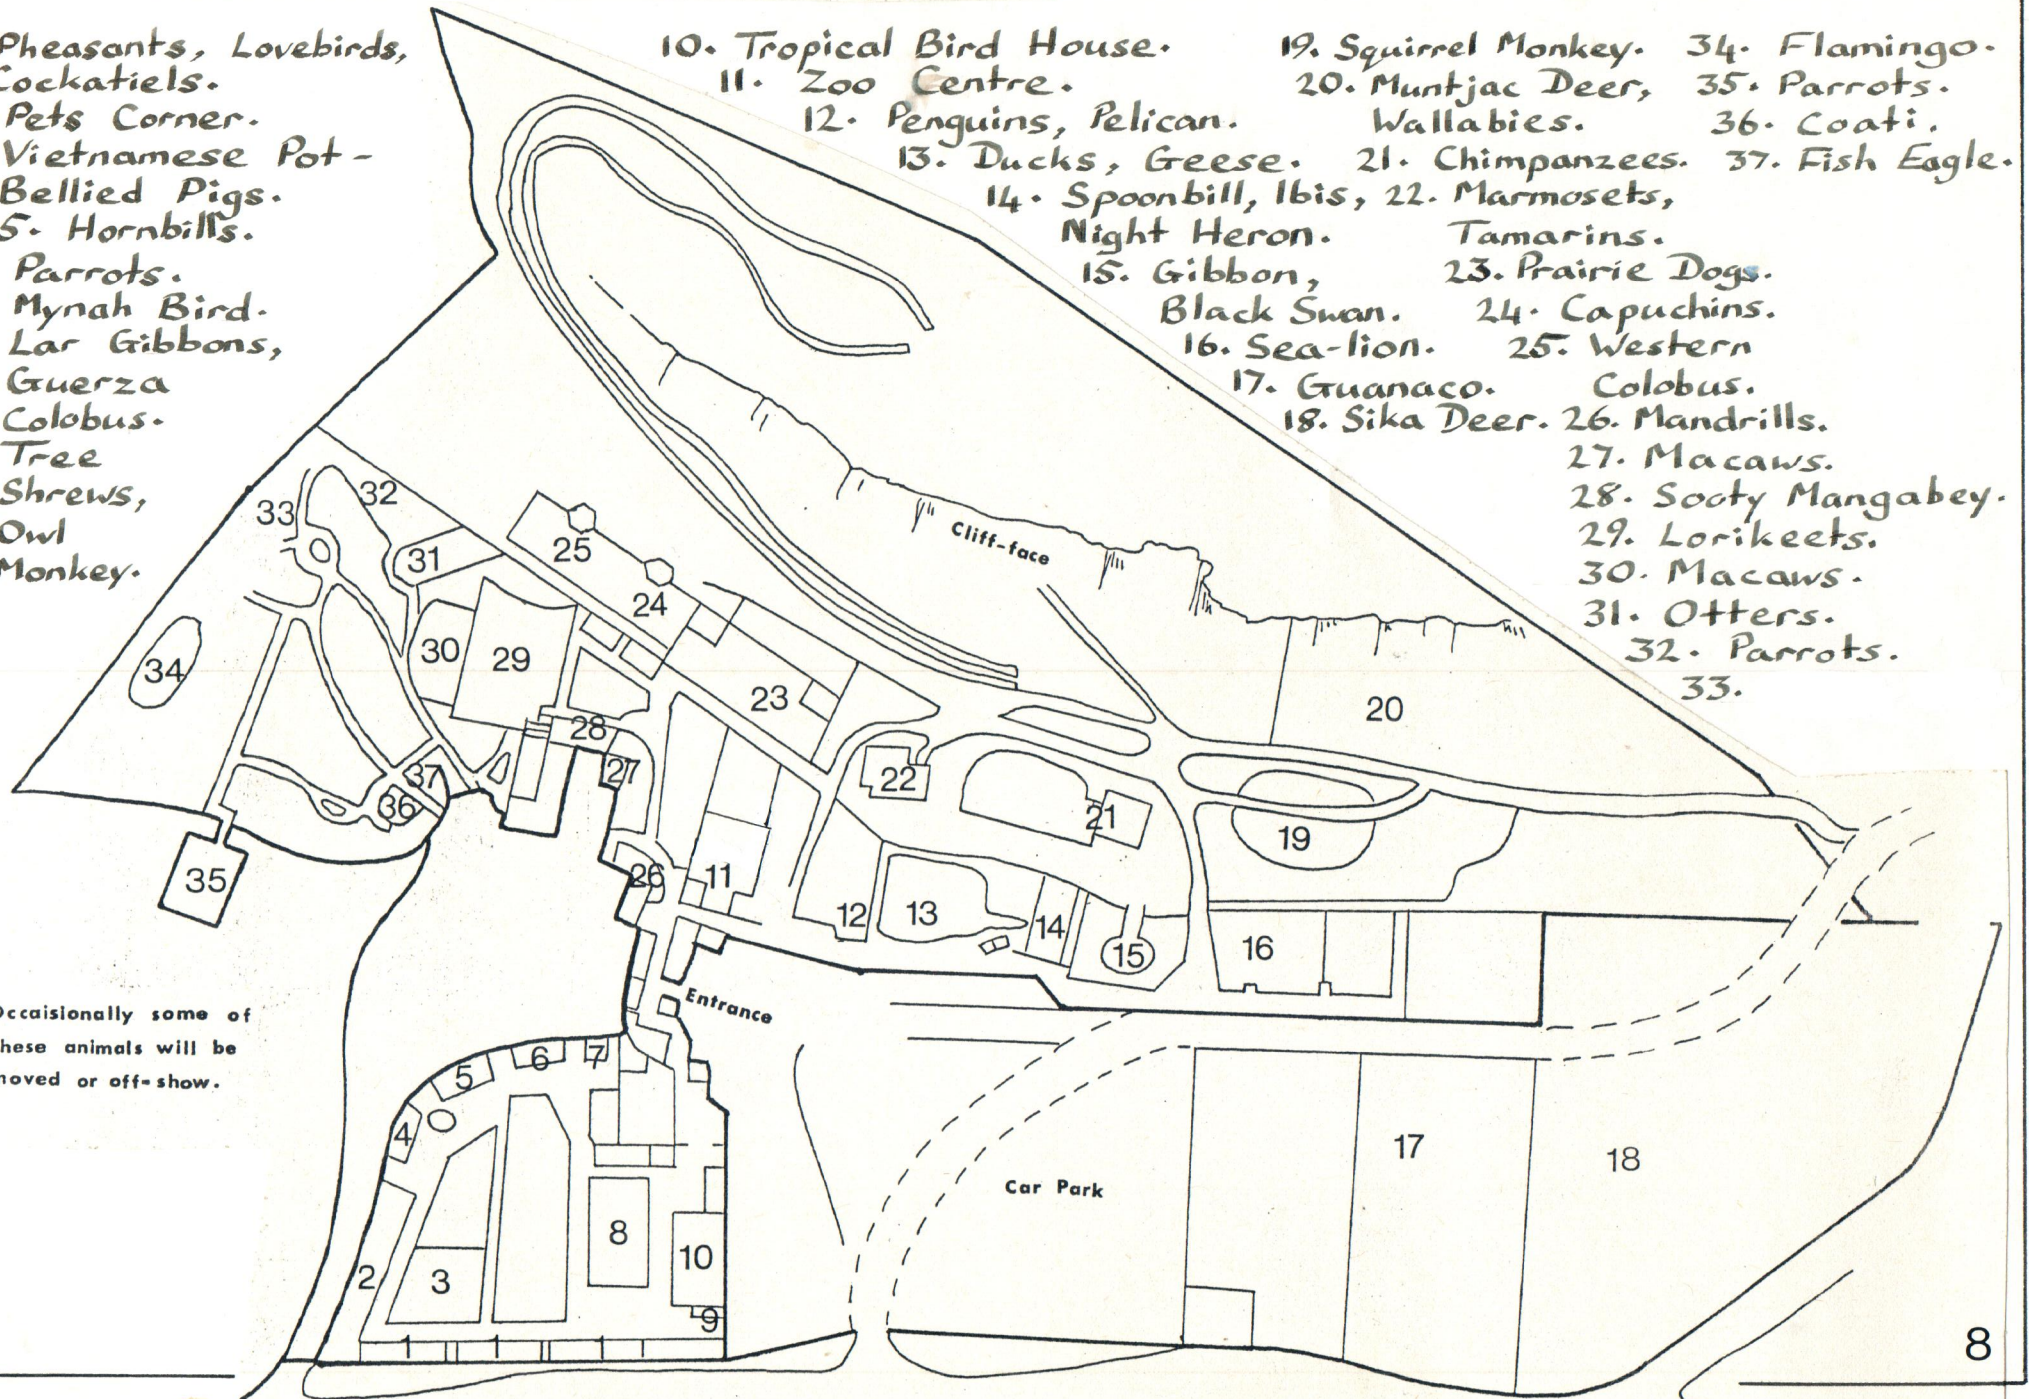 Pheasants, Lovebirds,
Cockatiels.
Pets Corner.
Vietnamese Pot-
Bellied Pigs.
5. Hornbills.
Parrots.
Mynah Bird.
Lar Gibbons,
Guerza
Colobus.
Tree
Shrews,
Owl
Monkey.
10. Tropical Bird House.
11. Zoo Centre.
12. Penguins, Pelican.
13. Ducks, Geese.
14. Spoonbill, Ibis,
Night Heron.
15. Gibbon,
Black Swan.
16. Sea-lion.
17. Guanaco.
18. Sika Deer.
19. Squirrel Monkey.
20. Muntjac Deer,
Wallabies.
21. Chimpanzees.
22. Marmosets,
Tamarins.
23. Prairie Dogs.
24. Capuchins.
25. Western
Colobus.
26. Mandrills.
27. Macaws.
28. Sooty Mangabey.
29. Lorikeets.
30. Macaws.
31. Otters.
32. Parrots.
33.
34. Flamingo.
35. Parrots.
36. Coati.
37. Fish Eagle.
32
33
31
25
24
Cliff-face
34
30
29
23
20
28
27
22
21
19
37
36
35
26
11
12
13
14
15
16
Entrance
Occaisionally some of
these animals will be
moved or off-show.
6
7
5
4
17
18
Car Park
8
10
2
3
9
1
1
1
8